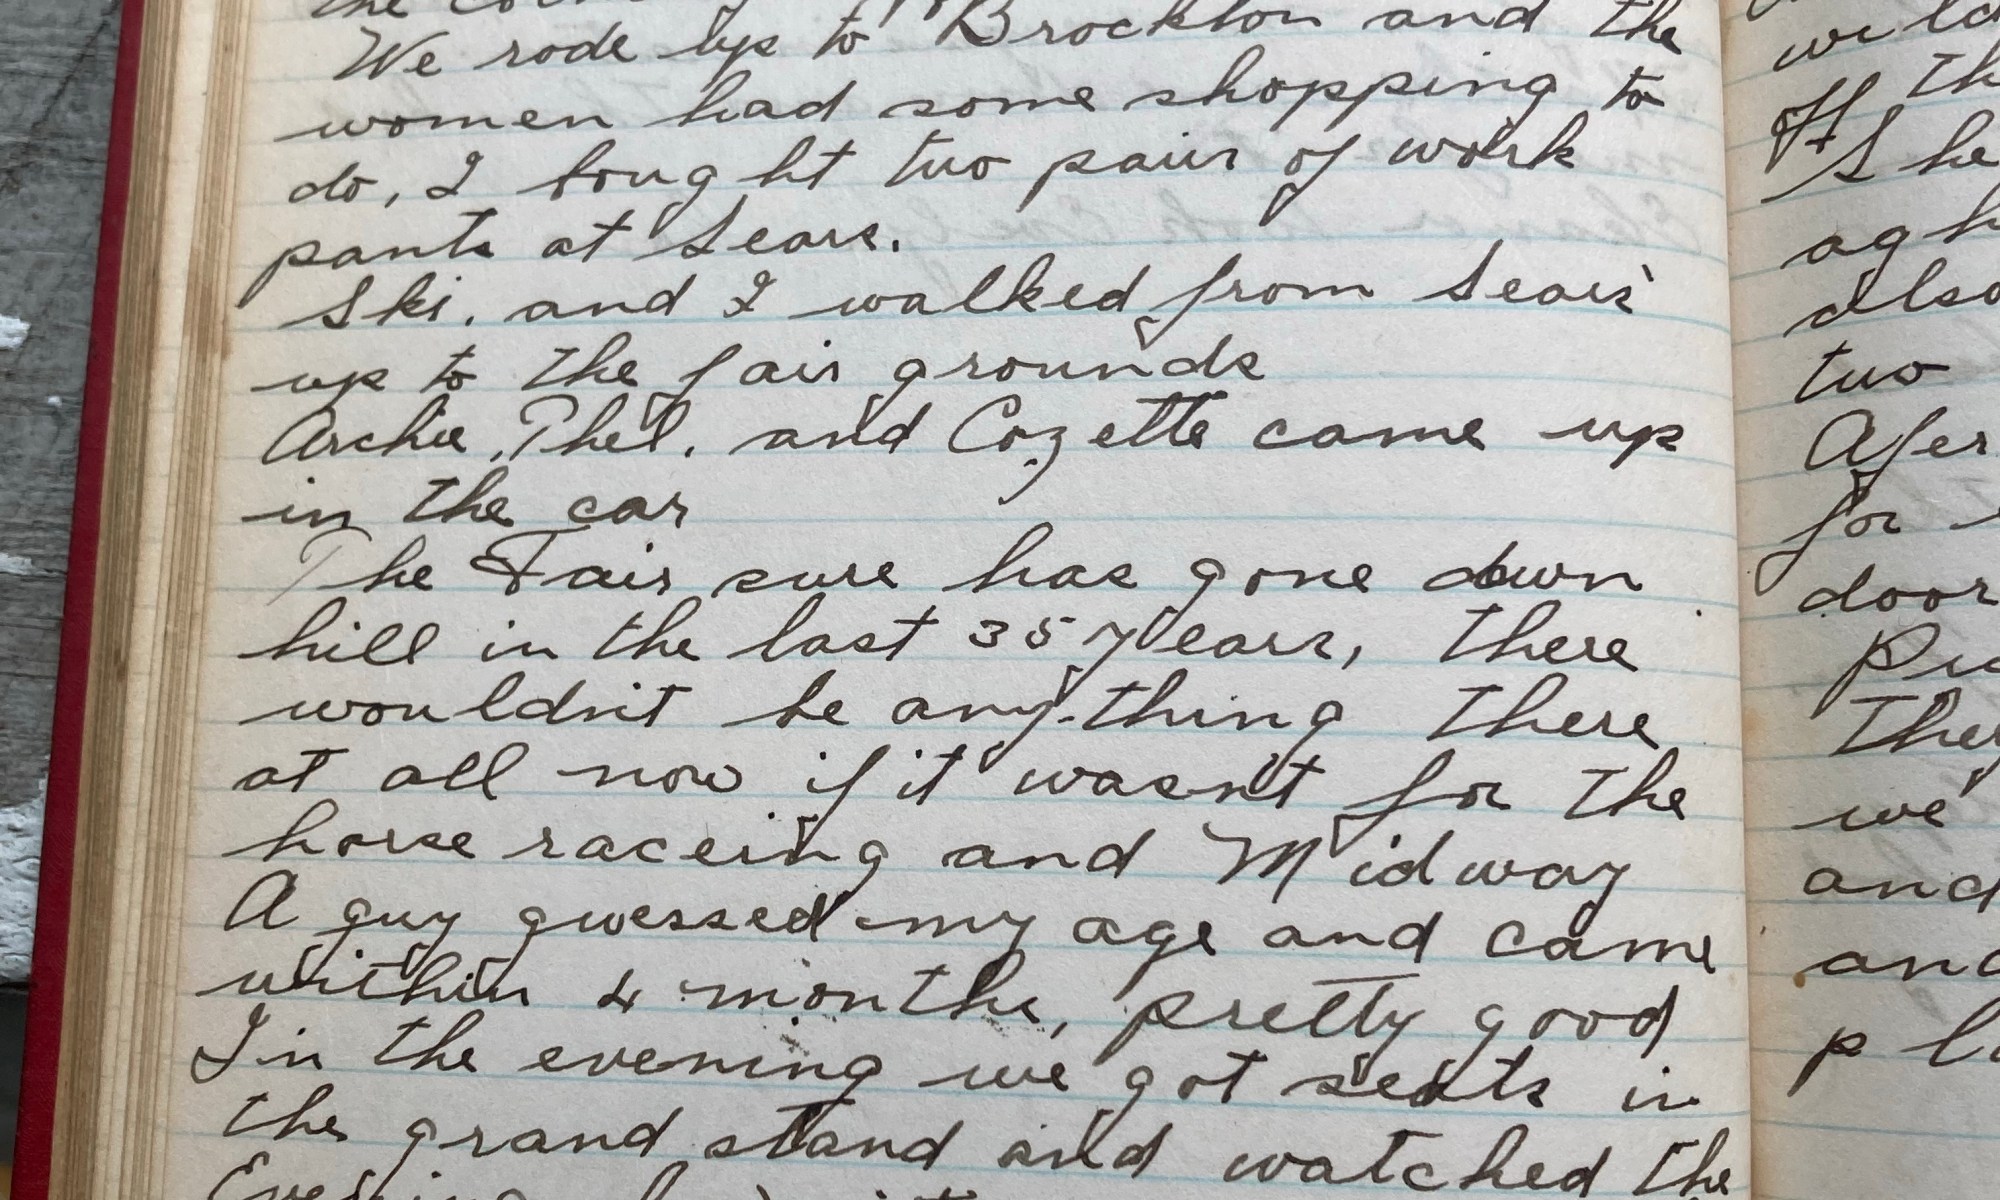 the
We rode up to Brockton and the
women had some shopping to
do, I bought two pair of work
pants at Sears.
Ski. and I walked from Sears
up to the fair grounds
Archie, Thel. and Cozette came up
in the car
The Fair sure has gone down
hill in the last 35 years, there
wouldn't be any-thing there
at all now if it wasn't for the
horse raceing and Midway
A guy guessed my age and came
within 4 months, pretty good
In the evening we got seats in
the grand stand and watched the
Evening
the
She
also
two
for
door
we
and